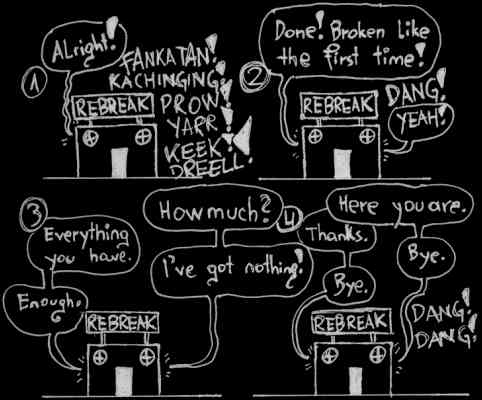 1
Alright!
FANKATAN!
KACHINGING!
PROW!
YARR!
KEEK!
DREELL!
REBREAK
2
Done! Broken like
the first time!
DANG!
YEAH!
REBREAK
3
How much?
Everything
you have.
I've got nothing!
Enough.
REBREAK
4
Here you are.
Thanks.
Bye.
Bye.
DANG!
DANG!
REBREAK